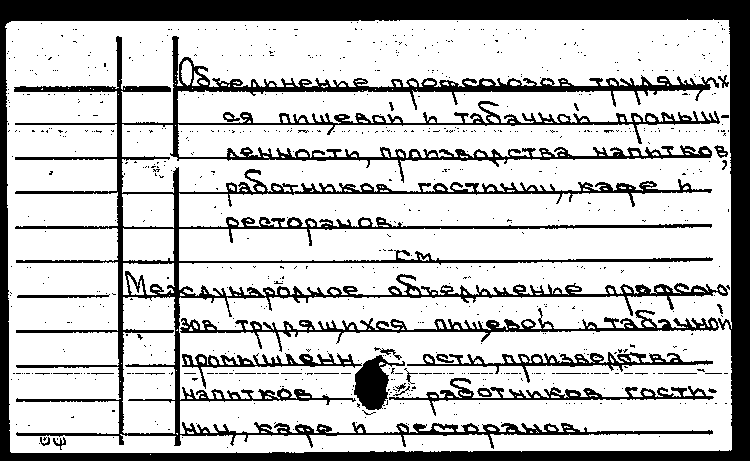 Объединение профсоюзов трудящих
ся пищевой и табачной промыш-
ленности, производства напитков,
работников гостиниц, кафе и
ресторанов.
см.
Международное объединение профсою-
зов трудящихся пищевой и табачной
промышленн ости, производства
напитков, работников гости-
ниц, кафе и ресторанов.